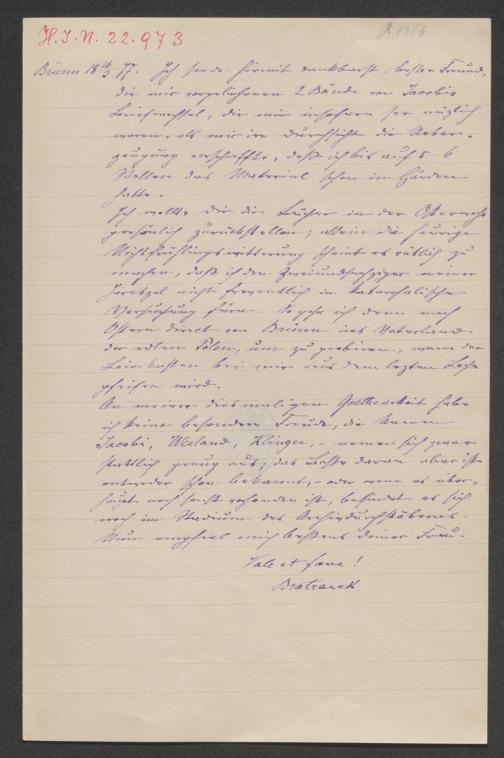 H.I.N. 22.973
Brünn 18 16/3 77. Ich sende hiemit dankbarst, bester Freund,
die mir vorgeliehenen 2 Bände von Jacobis
Briefwechsel, die mir insofern ser nüzlich
waren, als mir ire Durchsicht die Ueber-
zeugung verschaffte, daß ich bis auf 5-6
Stellen das Material schon in Händen
hatte.
Ich wollte dir die Bücher in der Osterwoche
persönlich zurückstellen; allein die heurige
Nichtfrühlingswitterung scheint es rätlich zu
machen, daß ich den Zweiundsechziger meiner
Jareszal nicht freventlich in katarrhalische
Versuchung füre. So gehe ich denn nach
Ostern direct von Brünn ins Vaterland
der edlen Polen, um zu probiren, wann der
Leierkasten bei mir aus dem lezten Loche
pfeifen wird.
An meiner diesmaligen Goethearbeit habe
ich keine besondere Freude, die Namen
Jacobi, Wieland, Klinger, – nemen sich zwar
stattlich genug aus; das Beste daran aber ist
entweder schon bekannt, – oder wenn es über-
haupt noch sonst vorhanden ist, befindet es sich
noch im Stadium des Archivdurchstöberns.
Nun empfiel mich bestens deiner Frau.
Vale et fave!
Bratranek